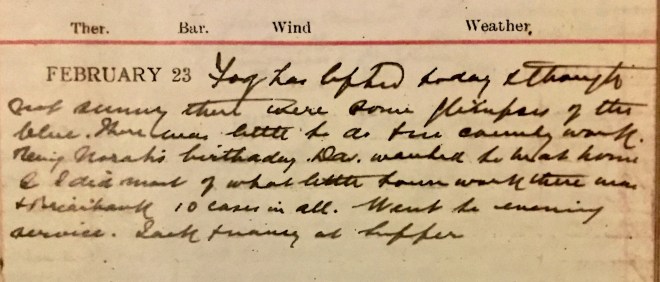 Ther. Bar. Wind Weather.
FEBRUARY 23 Fog has lifted today & though
not sunny there were some glimpses of the
blue. There was little to do & work.
Being Norah's birthday. Dav. wanted to be at home
& I did most of what little town work there was
& 10 cases in all. Went to evening
service. Jack & Nancy at supper